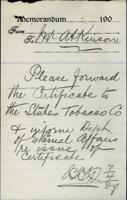 Memorandum 190
From
Atkinson
Please forward
the Certificate to
the States Tobacco Co
& inform Dept
of Internal Affairs
re issue of
Certificate